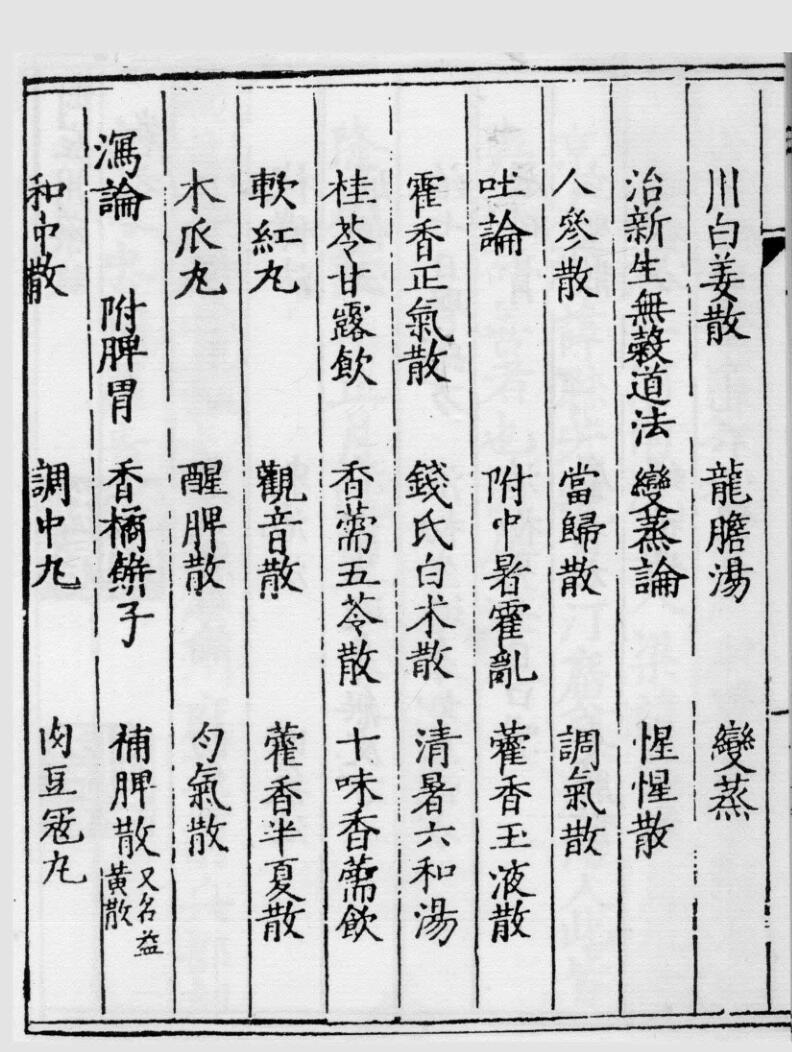 川白姜散　龍膽湯　變蒸
治新生無穀道法　變蒸論　惺惺散
人參散　當歸散　調氣散
吐論　附中暑霍亂　藿香玉液散
霍香正氣散　錢氏白术散　清暑六和湯
桂苓甘露飲　香薷五苓散　十味香薷飲
軟紅丸　觀音散　藿香半夏散
木瓜丸　醒脾散　勻氣散
瀉論　附脾胃　香橘餅子　補脾散又名益黃散
和中散　調中丸　肉豆冦丸